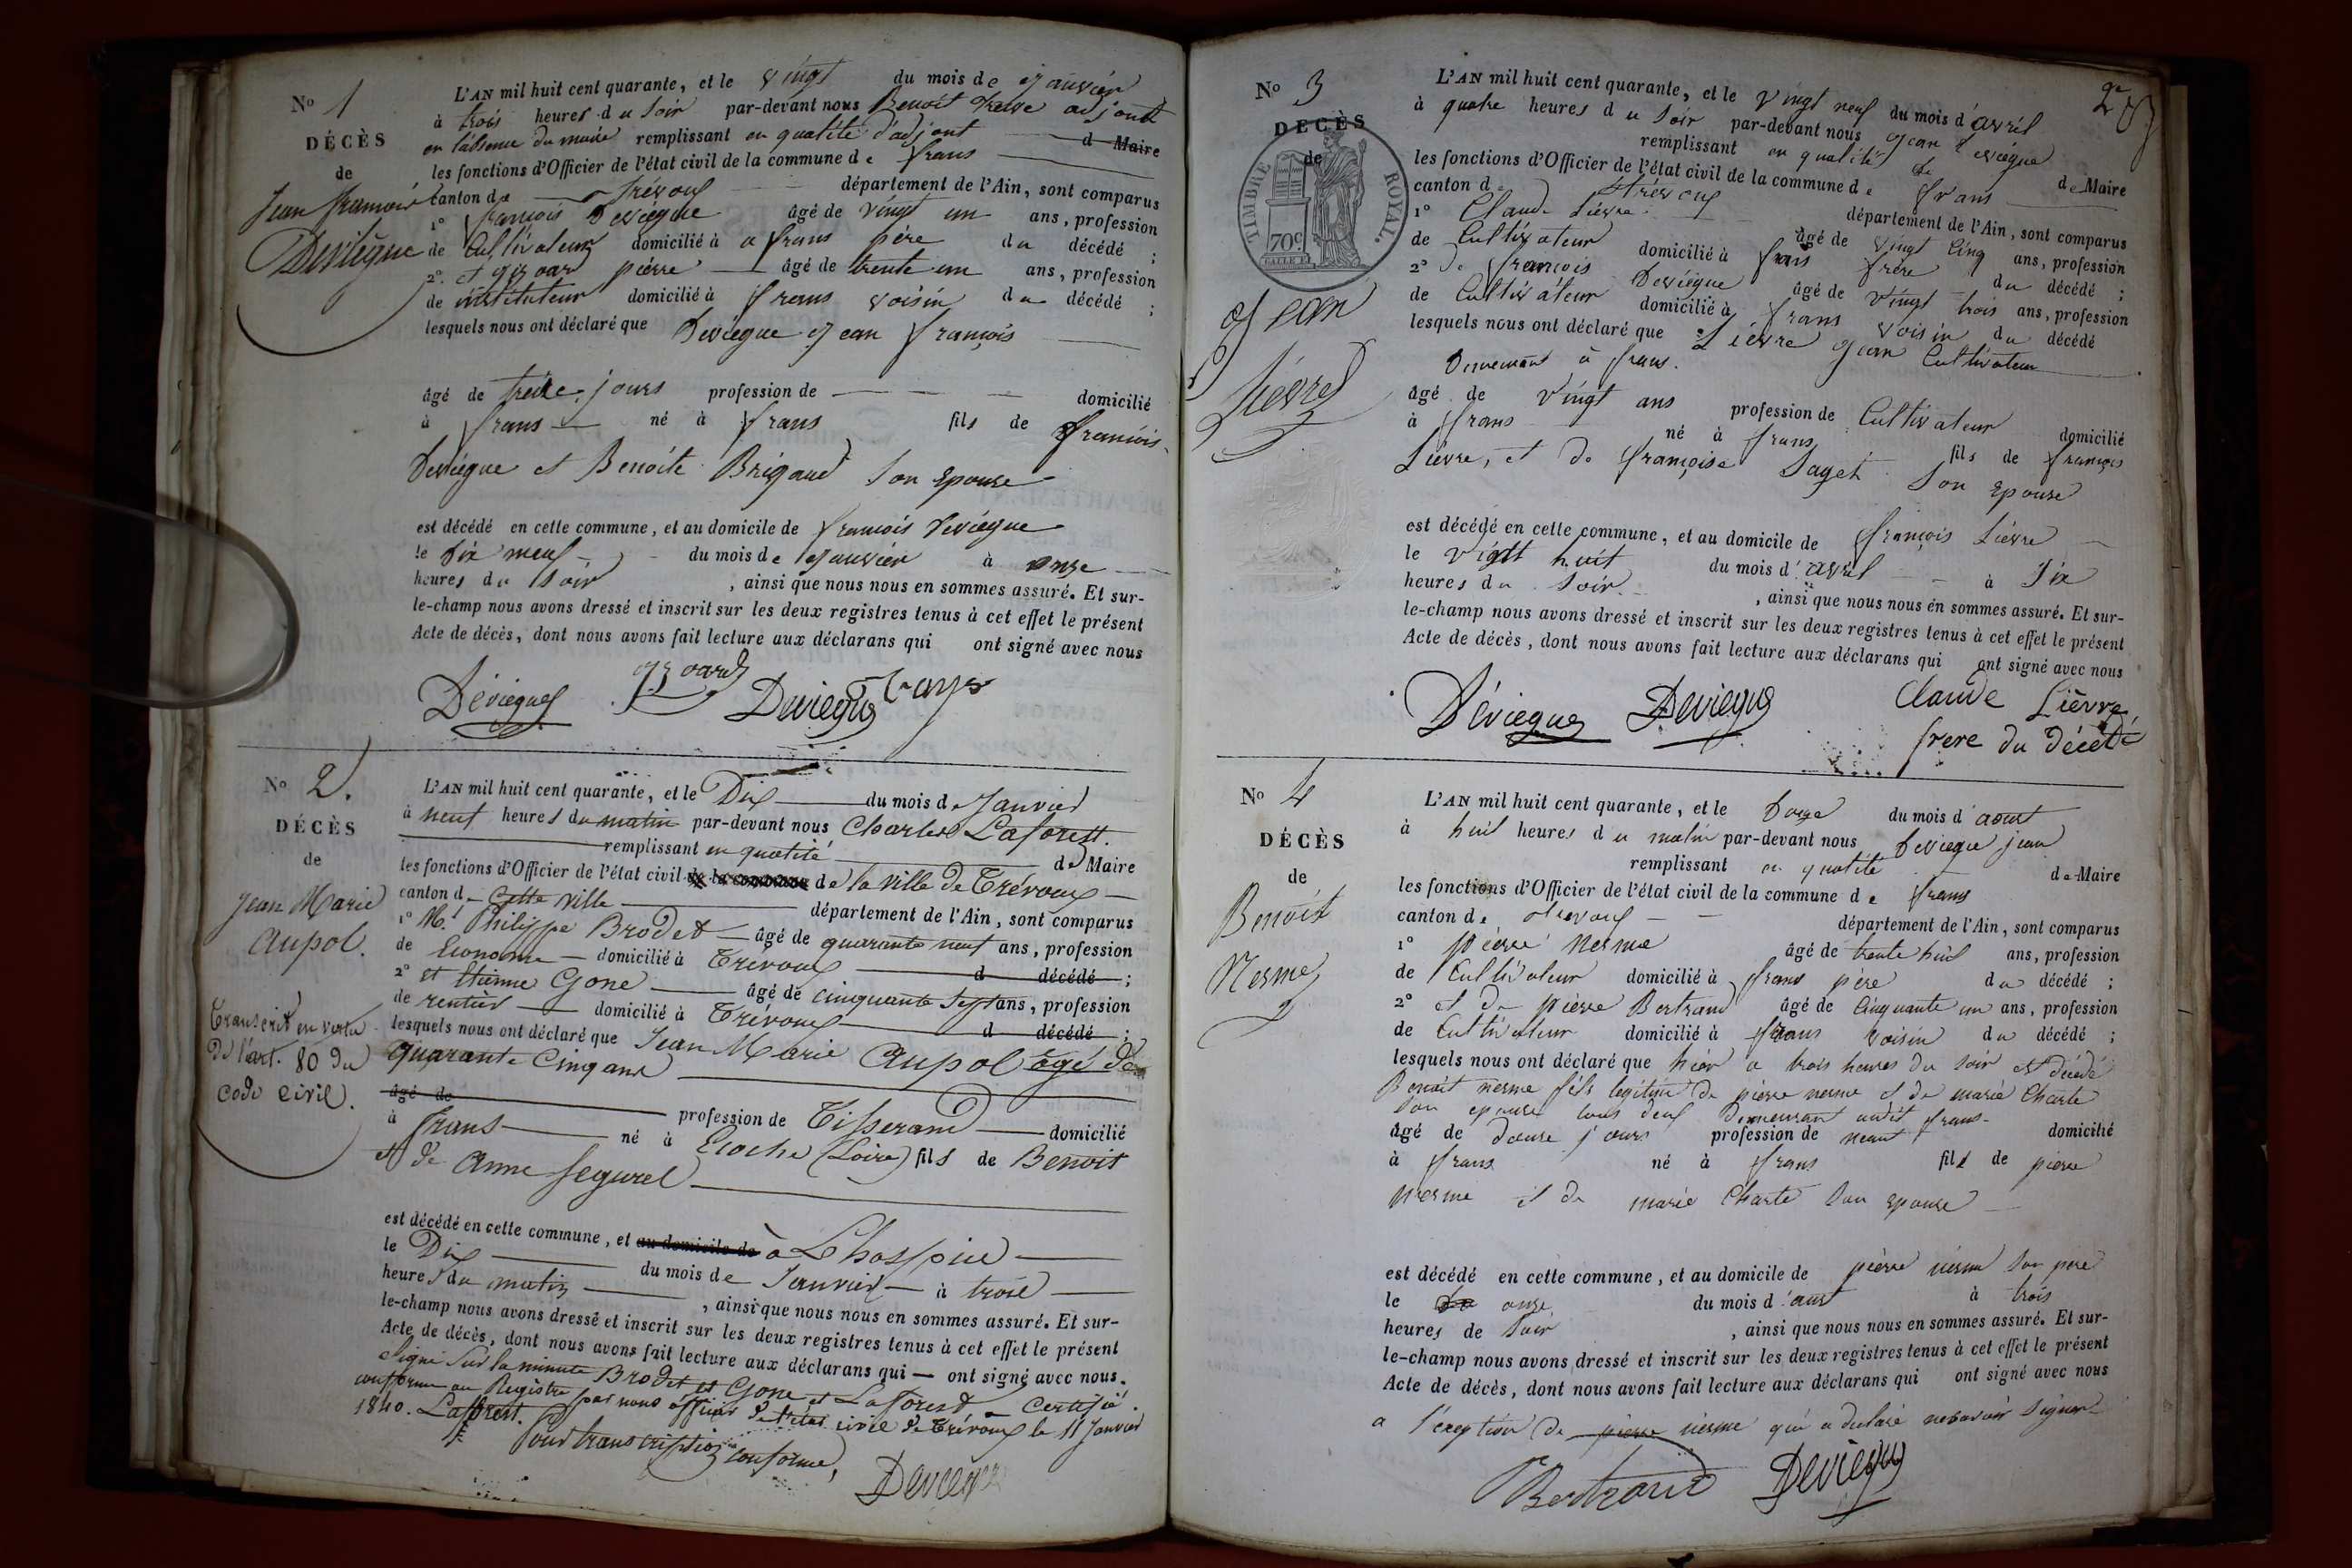 No 1
DÉCÈS
de
Jean François
Devièque
L'AN mil huit cent quarante, et le vingt du mois de Janvier
à trois heures du Soir par-devant nous Benoit adjoint
en l'absence du maire remplissant en qualité d'adjoint d Maire
les fonctions d'Officier de l'état civil de la commune de frans
canton de Trévoux département de l'Ain, sont comparus
1° françois Devièque âgé de vingt un ans, profession
de Cultivateur domicilié à a frans père du décédé ;
2° et gizoard pierre âgé de trente un ans, profession
de instituteur domicilié à frans voisin du décédé ;
lesquels nous ont déclaré que Devieque Jean françois
âgé de treize jours profession de domicilié
à frans né à frans fils de françois
Devièque et Benoite Brigaud Son Epouse
est décédé en cette commune, et au domicile de françois Devièque
le Dix neuf du mois de Janvier à onze
heures du Soir , ainsi que nous nous en sommes assuré. Et sur-
le-champ nous avons dressé et inscrit sur les deux registres tenus à cet effet le présent
Acte de décès, dont nous avons fait lecture aux déclarans qui ont signé avec nous
Dévieque gizoard Devieque
No 2.
DÉCÈS
de
Jean Marie
Aupol.
Transcrit en vertu
de l'art. 80 du
code civil.
L'AN mil huit cent quarante, et le Dix du mois de Janvier
à neuf heures du matin par-devant nous Charles Laforest.
remplissant en qualité de Maire
les fonctions d'Officier de l'état civil de la commune de la ville de Trévoux
canton d cette ville département de l'Ain, sont comparus
1° Mr. Philippe Brodet âgé de quarante neuf ans, profession
de Econome domicilié à Trévoux d décédé ;
2° et Etienne Gone âgé de cinquante Sept ans, profession
de rentier domicilié à Trévoux d décédé ;
lesquels nous ont déclaré que Jean Marie Aupol âgé de
quarante Cinq ans
âgé de profession de Tisserand domicilié
à frans né à Ecoche (Loire) fils de Benoit
et de Anne Segurel
est décédé en cette commune, et au domicile de à L'hospice
le Dix du mois de Janvier à trois
heures du matin , ainsi que nous nous en sommes assuré. Et sur-
le-champ nous avons dressé et inscrit sur les deux registres tenus à cet effet le présent
Acte de décès, dont nous avons fait lecture aux déclarans qui ont signé avec nous.
Signé Sur la minute Brodet et Gone et Laforest Certifié
conforme au Registre par nous officier de l'état civil de Trévoux le 11 Janvier
1840. Laforest.
Pour transcription conforme,
Devieque
2e
No 3
DECÈS
de
TIMBRE ROYAL.
70c
Jean
Lièvre
L'AN mil huit cent quarante, et le vingt neuf du mois d'avril
à quatre heures du Soir par-devant nous Jean Devièque
remplissant en qualité de de Maire
les fonctions d'Officier de l'état civil de la commune de frans
canton de Trévoux département de l'Ain, sont comparus
1° Claude Lièvre âgé de vingt Cinq ans, profession
de Cultivateur domicilié à frans frère du décédé ;
2° de françois Devièque âgé de vingt trois ans, profession
de Cultivateur domicilié à frans voisin du décédé
lesquels nous ont déclaré que Lièvre Jean Cultivateur
Demeurant à frans.
âgé de vingt ans profession de Cultivateur domicilié
à frans né à frans fils de françois
Lièvre, et de françoise Saget Son Epouse
est décédé en cette commune, et au domicile de françois Lièvre
le vingt huit du mois d'avril à Six
heures du Soir , ainsi que nous nous en sommes assuré. Et sur-
le-champ nous avons dressé et inscrit sur les deux registres tenus à cet effet le présent
Acte de décès, dont nous avons fait lecture aux déclarans qui ont signé avec nous
Dévieque Devieque Claude Lièvre
frere du décédé
No 4
DÉCÈS
de
Benoit
Nesme
L'AN mil huit cent quarante, et le Douze du mois d'aout
à huit heures du matin par-devant nous Devieque jean
remplissant en qualité de Maire
les fonctions d'Officier de l'état civil de la commune de frans
canton de Trevoux département de l'Ain, sont comparus
1° pierre Nesme âgé de trente huit ans, profession
de Cultivateur domicilié à frans père du décédé ;
2° et de pierre Bertrand âgé de Cinquante un ans, profession
de Cultivateur domicilié à frans voisin du décédé ;
lesquels nous ont déclaré que hier a trois heures du soir est décédé
Benoit nesme fils legitime de pierre nesme et de marie Charte
Son epouse tous deux Demeurant audit frans
âgé de douze jours profession de neant domicilié
à frans né à frans fils de pierre
nesme et de marie Charte Son epouse
est décédé en cette commune, et au domicile de pierre nesme Son pere
le onze du mois d'aout à trois
heures de Soir , ainsi que nous nous en sommes assuré. Et sur-
le-champ nous avons dressé et inscrit sur les deux registres tenus à cet effet le présent
Acte de décès, dont nous avons fait lecture aux déclarans qui ont signé avec nous
a l'exeption de pierre nesme qui a declaré ne savoir Signer
Bertrand Devieque